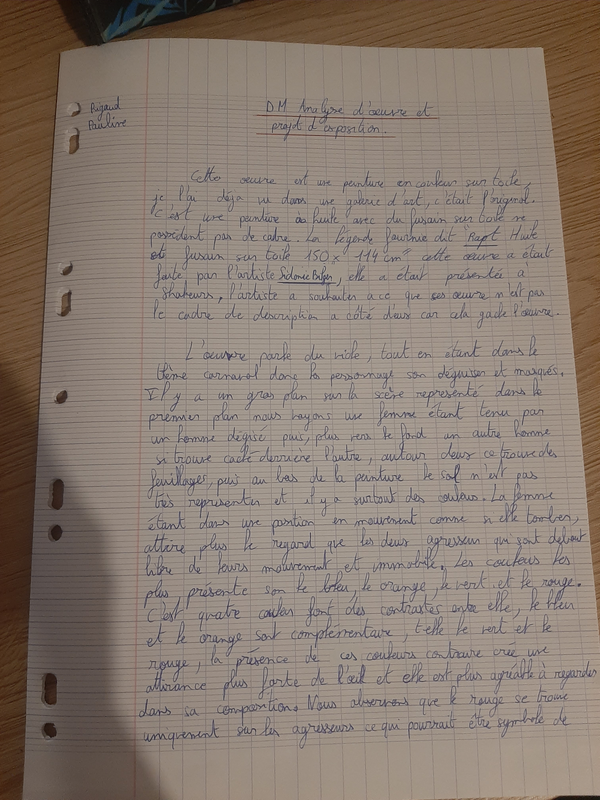 Rigaud
Pauline
DM Analyse d'œuvre et
projet d'exposition.
Cette œuvre est une peinture en couleur sur toile,
je l'ai déja vu dans une galerie d'art, c'était l'original.
C'est une peinture a huile avec du fusain sur toile ne
possédent pas de cadre. La légende fournie dit "Rapt Huile
et fusain sur toile 150 x 114 cm" cette œuvre a était
faite par l'artiste Sidonie, elle a était présentée a
Shakeurs, l'artiste a souhaiter a ce que ses œuvre n'est pas
le cadre de description a côté deux car cela gache l'œuvre.
L'œuvre parle du viole, tout en étant dans le
thème carnaval donc les personnage son déguiser et masqués.
Il y a un gros plan sur la scène représenté dans le
premier plan nous voyons une femme étant tenu par
un homme dégisé puis, plus vers le fond un autre homme
si trouve caché derrière l'autre, autour deux ce trouve des
feuillages, puis au bas de la peinture le sol n'est pas
très représenter et il y a surtout des couleurs. La femme
étant dans une position en mouvement comme si elle tomber,
attire plus le regard que les deux agresseur qui sont debout
libre de leurs mouvement et immobile. Les couleurs les
plus présente son le bleu, le orange, le vert et le rouge.
C'est quatre couleurs font des contrastes entre elle, le bleu
et le orange sont complémentaire, t-elle le vert et le
rouge, la présence de ces couleurs contraire crée une
attirance plus forte de l'œil et elle est plus agréable à regarder
dans sa composition. Nous observons que le rouge se trouve
uniquement sur les agresseurs ce qui pourrait être symbole de